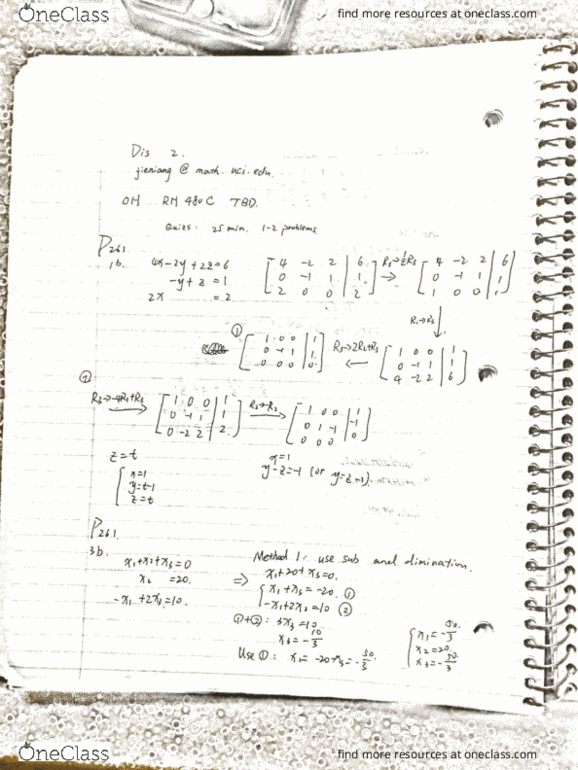 OneClass
find more resources at oneclass.com
Dis 2.
jieniang @ math. uci.edu.
OH RM 480C TBD.
Quizs: 25 min. 1-2 problems
P261
1b. 4x-2y+2z=6
-y+z=1
2x =2
[4 -2 2 | 6]
[0 -1 1 | 1]
[2 0 0 | 2]
R3→½R3
[4 -2 2 | 6]
[0 -1 1 | 1]
[1 0 0 | 1]
R1→R3
[1 0 0 | 1]
[0 -1 1 | 1]
[4 -2 2 | 6]
①
[1 0 0 | 1]
[0 -1 1 | 1]
[0 0 0 | 0]
R3→-4R1+R3
[1 0 0 | 1]
[0 -1 1 | 1]
[0 -2 2 | 2]
[1 0 0 | 1]
[0 1 -1 | -1]
[0 0 0 | 0]
z=t
x=1
y=t-1
z=t
x=1
y-z=-1
P261.
3b.
x1+x2+x3=0
x2 =20.
-x1 +2x3=10.
⇒
Method 1: use sub and elimination.
x1+20+x3=0.
x1+x3=-20. ①
-x1+2x3=10 ②
①+②:
Use ①:
OneClass
find more resources at oneclass.com